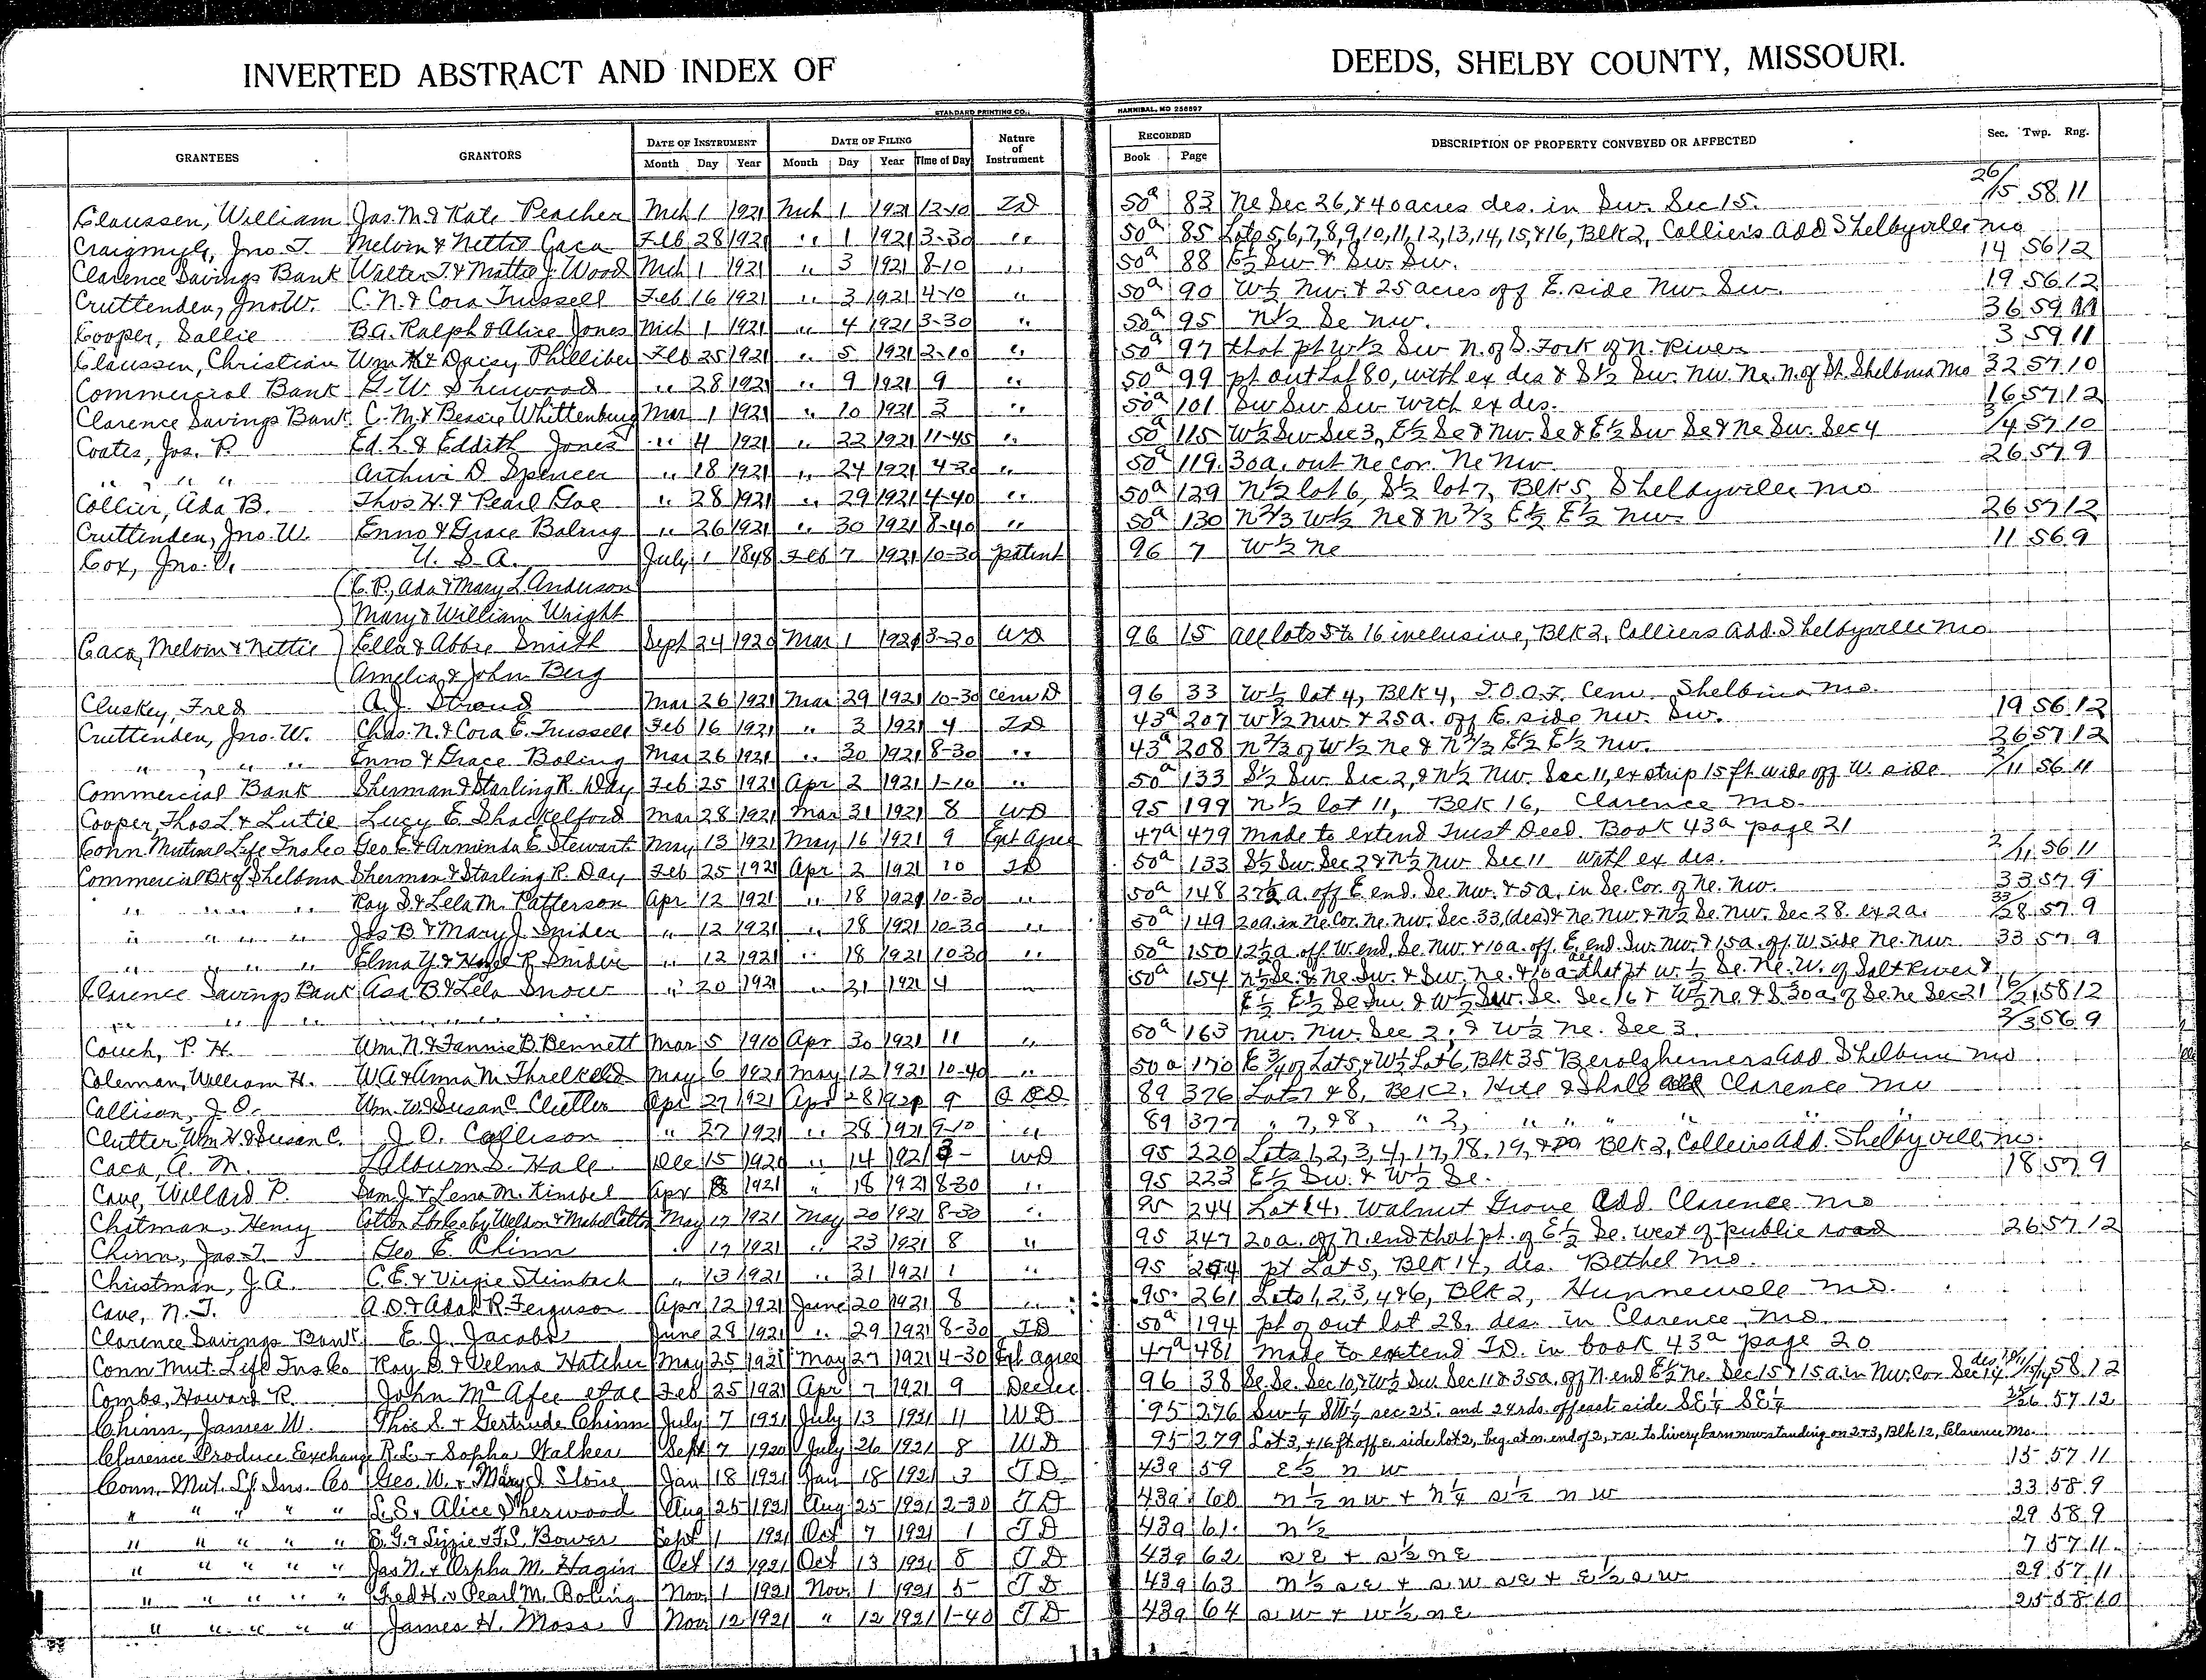 INVERTED ABSTRACT AND INDEX OF DEEDS, SHELBY COUNTY, MISSOURI.
STANDARD PRINTING CO., HANNIBAL, MO 256897
GRANTEES GRANTORS DATE OF INSTRUMENT Month Day Year DATE OF FILING Month Day Year Time of Day Nature of Instrument RECORDED Book Page DESCRIPTION OF PROPERTY CONVEYED OR AFFECTED Sec. Twp. Rng.
Claussen, William Jas. M. & Kate Peacher Mch 1 1921 Mch 1 1921 12-10 TD 50a 83 Ne Sec 26, & 40 acres des. in Sw. Sec 15. 26/15 58 11
Craigmyle, Jno. T. Melvin & Nettie Caca Feb 28 1921 " 1 1921 3-30 " 50a 85 Lots 5,6,7,8,9,10,11,12,13,14,15,&16, Blk 2, Colliers Add Shelbyville Mo
Clarence Savings Bank Walter T. & Mattie J. Wood Mch 1 1921 " 3 1921 8-10 " 50a 88 E½ Sw & Sw. Sw. 14 56 12
Cruttenden, Jno. W. C. N. & Cora Trussell Feb 16 1921 " 3 1921 4-10 " 50a 90 W½ Nw. & 25 acres off E. side Nw. Sw. 19 56 12
Cooper, Sallie B.A. Ralph & Alice Jones Mch 1 1921 " 4 1921 3-30 " 50a 95 N½ Se Nw. 36 59 11
Claussen, Christian Wm H & Daisy Philliber Feb 25 1921 " 5 1921 2-10 " 50a 97 that pt W½ Sw N. of S. Fork of N. River 3 59 11
Commercial Bank G. W. Sherwood " 28 1921 " 9 1921 9 " 50a 99 pt out Lot 80, with ex des & S½ Sw. Nw. Ne. N. of St. Shelbina Mo 32 57 10
Clarence Savings Bank C. M. & Bessie Whittenburg Mar 1 1921 " 10 1921 3 " 50a 101 Sw Sw Sw with ex des. 16 57 12
Coates, Jos. P. Ed. L. & Eddith Jones " 4 1921 " 22 1921 11-45 " 50a 115 W½ Sw Sec 3, E½ Se & Nw. Se & E½ Sw Se & Ne Sw. Sec 4 3/4 57 10
" " " Arthur D. Spencer " 18 1921 " 24 1921 4-30 " 50a 119 30a. out Ne cor. Ne Nw 26 57 9
Collier, Ada B. Thos H. & Pearl Goe " 28 1921 " 29 1921 4-40 " 50a 129 N½ lot 6, S½ lot 7, Blk 5, Shelbyville Mo
Cruttenden, Jno. W. Enno & Grace Boling " 26 1921 " 30 1921 8-40 " 50a 130 N⅔ W½ Ne & N⅔ E½ E½ Nw 26 57 12
Cox, Jno. U. S. A. July 1 1848 Feb 7 1921 10-30 patent 96 7 W½ Ne 11 56 9
C. P., Ada & Mary L. Anderson
Mary & William Wright
Caca, Melvin & Nettie Ella & Abbie Smith Sept 24 1920 Mar 1 1921 3-20 WD 96 15 All lots 5 to 16 inclusive, Blk 2, Colliers Add. Shelbyville Mo
Amelia & John Berg
Cluskey, Fred A. J. Stroud Mar 26 1921 Mar 29 1921 10-30 Cem D 96 33 W½ lot 4, Blk 4, I.O.O.F. Cem. Shelbina Mo.
Cruttenden, Jno. W. Chas. N. & Cora E. Trussell Feb 16 1921 " 3 1921 4 TD 43a 207 W½ Nw. & 25a. off E. side Nw. Sw. 19 56 12
" " " Enno & Grace Boling Mar 26 1921 " 30 1921 8-30 " 43a 208 N⅔ of W½ Ne & N⅔ E½ E½ Nw. 26 57 12
Commercial Bank Sherman & Starling R. Day Feb 25 1921 Apr 2 1921 1-10 " 50a 133 S½ Sw. Sec. 2, & N½ Nw. Sec 11, ex strip 15 ft wide off W. side 2/11 56 11
Cooper, Thos L. & Lutie Lucy E. Shackelford Mar 28 1921 Mar 31 1921 8 WD 95 199 N½ lot 11, Blk 16, Clarence Mo.
Conn Mutual Life Ins Co Geo E & Arminda E Stewart May 13 1921 May 16 1921 9 Ext Agree 47a 479 Made to extend Trust Deed Book 43a page 21
Commercial Bk of Shelbina Sherman & Starling R. Day Feb 25 1921 Apr 2 1921 10 TD 50a 133 S½ Sw Sec 2 & N½ Nw Sec 11 with ex des. 2/11 56 11
" " " " Roy S. & Lela M. Patterson Apr 12 1921 " 18 1921 10-30 " 50a 148 27½ a. off E. end. Se. Nw. & 5a. in Se. Cor. of Ne. Nw. 33 57 9
" " " " Jas B & Mary J. Snider " 12 1921 " 18 1921 10-30 " 50a 149 20a. in Ne Cor. Ne. Nw. Sec. 33, (des) & Ne. Nw. & N½ Se. Nw. Sec 28. ex 2a. 33/28 57 9
" " " " Elma Y. & Hazel R. Snider " 12 1921 " 18 1921 10-30 " 50a 150 12½ a. off W. end. Se. Nw. & 10a. off E. end. Sw. Nw. & 15a. of W. side Ne. Nw 33 57 9
Clarence Savings Bank Asa B. & Lela Snow " 20 1921 " 21 1921 4 " 50a 154 N½ Se. & Ne. Sw. & Sw. Ne. & 10a that pt W. ½ Se. Ne. W. of Salt River &
" " " E½ E½ Se Sw & W½ Sw. Se. Sec 16 & W½ Ne & S. 30a. of Se. Ne Sec 21 16/21 58 12
Couch, P. H. Wm. N. & Fannie B. Bennett Mar 5 1910 Apr 30 1921 11 " 50a 163 Nw. Nw. Sec 2, & W½ Ne. Sec 3. 2/3 56 9
Coleman, William H. W. A & Anna M. Threlkeld May 6 1921 May 12 1921 10-40 " 50a 170 E ¾ of Lot 5, & W½ Lot 6, Blk 35 Berolzheimers Add. Shelbina Mo
Collison, J. O. Wm. W. & Susan C Clutter Apr 27 1921 Apr 28 1921 9 Q C D 89 376 Lot 7 & 8, Blk 2, Hite & Shale add Clarence Mo
Clutter Wm H. & Susan C. J. O. Collison " 27 1921 " 28 1921 9-10 " 89 377 " 7, & 8, " 2, " " " " " "
Caca, A. M. Lilburn S. Hale Dec 15 1920 " 14 1921 9- WD 95 220 Lots 1, 2, 3, 4, 17, 18, 19, & 20 Blk 2, Colliers Add. Shelbyville, Mo.
Cave, Willard P. Sam J. & Lena M. Kimbel Apr 8 1921 " 18 1921 8-30 " 95 223 E½ Sw. & W½ Se. 18 57 9
Chitman, Henry May 17 1921 May 20 1921 8-30 " 95 244 Lot 14, Walnut Grove Add Clarence Mo
Chinn, Jas. T. Geo E. Chinn " 17 1921 " 23 1921 8 " 95 247 20a. of N. end that pt. of E½ Se. west of public road 26 57 12
Christman, J. A. C. E. & Virgie Steinbach " 13 1921 " 31 1921 1 " 95 254 pt Lot 5, Blk 14, des. Bethel Mo.
Cave, N. T. A. D. & Adah R. Ferguson Apr 12 1921 June 20 1921 8 " 95 261 Lots 1, 2, 3, 4 & 6, Blk 2, Hunnewell Mo.
Clarence Savings Bank E. J. Jacobs June 28 1921 " 29 1921 8-30 TD 50a 194 pt of out lot 28, des. in Clarence, Mo
Conn Mut. Life Ins Co Roy D. & Velma Hatcher May 25 1921 May 27 1921 4-30 Ext Agree 47a 481 Made to extend T.D. in book 43a page 20
Combs, Howard R. John McAfee et al Feb 25 1921 Apr 7 1921 9 Decree 96 38 Se. Se. Sec 10, & W½ Sw Sec 11 & 35a. of N. end E½ Ne. Sec 15 & 15a. in Nw. Cor Sec 14 des. 10/11/15/14 58 12
Chinn, James W. Thos S. & Gertrude Chinn July 7 1921 July 13 1921 11 WD 95 276 Sw¼ SW¼ sec 25, and 24 rds. off east side SE¼ SE¼ 25/26 57 12
Clarence Produce Exchange R. L. & Sopha Walker Sept 7 1920 July 26 1921 8 WD 95 279 Lot 3, & 16 ft off e. side lot 2, beg. at n. end of 2, to livery barn now standing on 2 & 3, Blk 12, Clarence Mo.
Conn. Mut. Lf. Ins. Co Geo. W. & Mary J. Stoire Jan 18 1921 Jan 18 1921 3 TD 43a 59 E½ NW 15 57 11
" " " " " L. S. & Alice Sherwood Aug 25 1921 Aug 25 1921 2-30 TD 43a 60 N½ NW & N½ S½ NW 33 58 9
" " " " " E. G. & Lizzie & F. S. Bower Sept 1 1921 Oct 7 1921 1 TD 43a 61 N½ 29 58 9
" " " " " Jas N. & Orpha M. Hagin Oct 12 1921 Oct 13 1921 8 TD 43a 62 SE & S½ NE 7 57 11
" " " " " Fred H. & Pearl M. Boling Nov 1 1921 Nov. 1 1921 5 TD 43a 63 N½ SE & SW SE & E½ SW 29 57 11
" " " " " James H. Moss Nov 12 1921 " 12 1921 1-40 TD 43a 64 SW & W½ NE 25 58 10